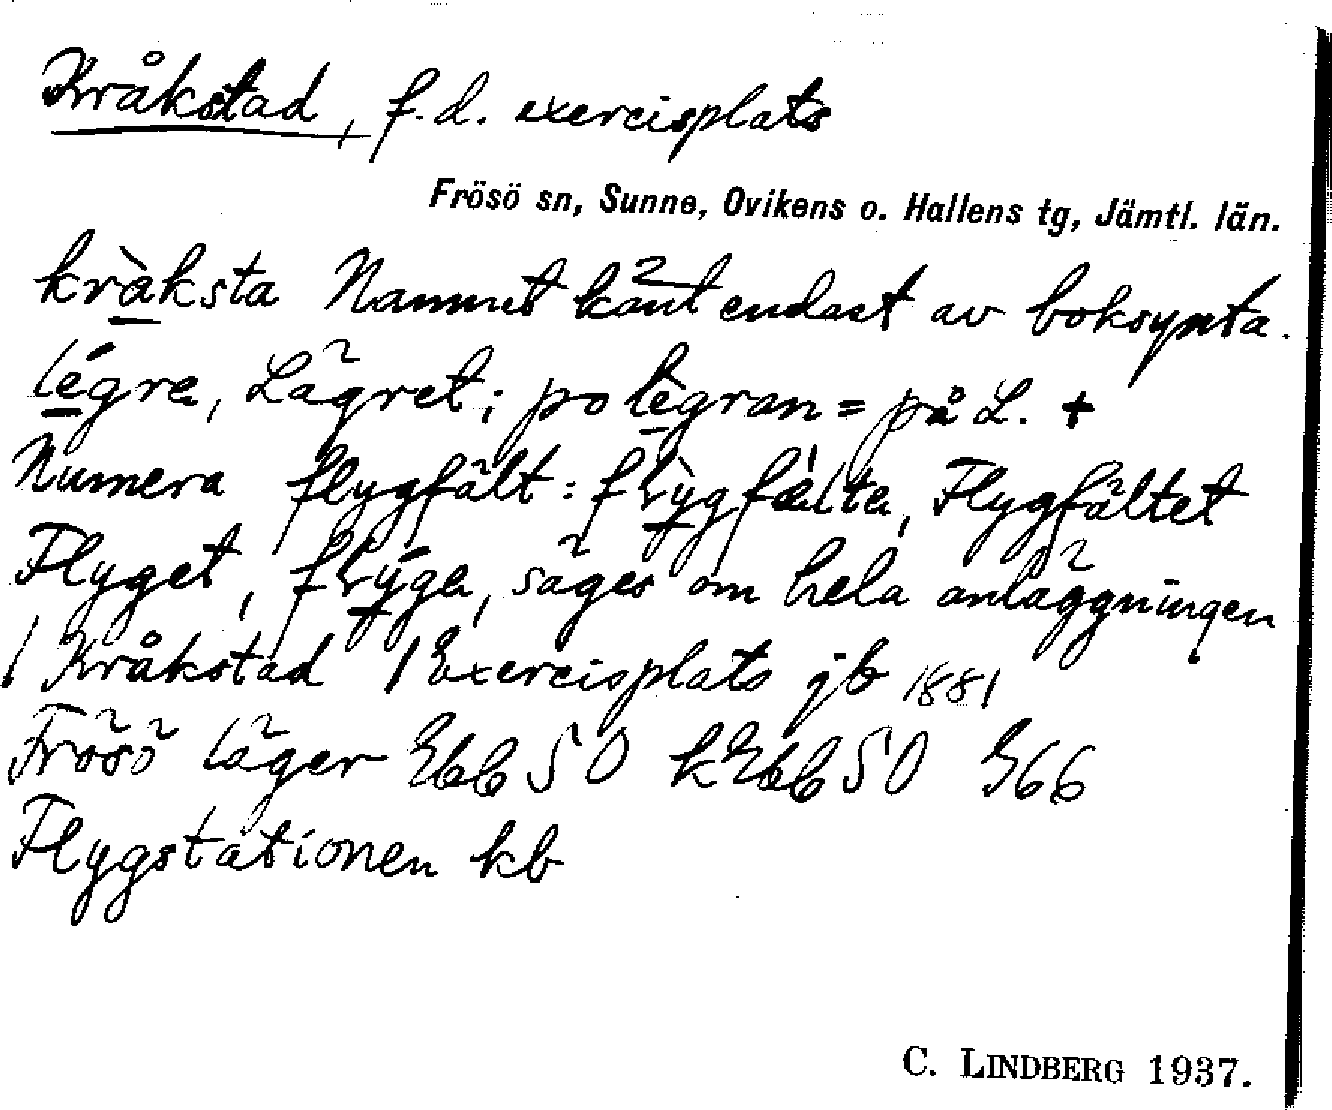 Kråkstad, f.d. exercisplats
Frösö sn, Sunne, Ovikens o. Hallens tg, Jämtl. län.
kràksta Namnet känt endast av boksynta.
légre, Lägret; po lègran = på L. +
Numera flygfält: flỳgfælte, Flygfältet
Flyget, flýge, säges om hela anläggningen
/ Kråkstad / Exercisplats jb 1881
Frösö läger Ebb 50 k Ebb 50 G66
Flygstationen kb
C. LINDBERG 1937.